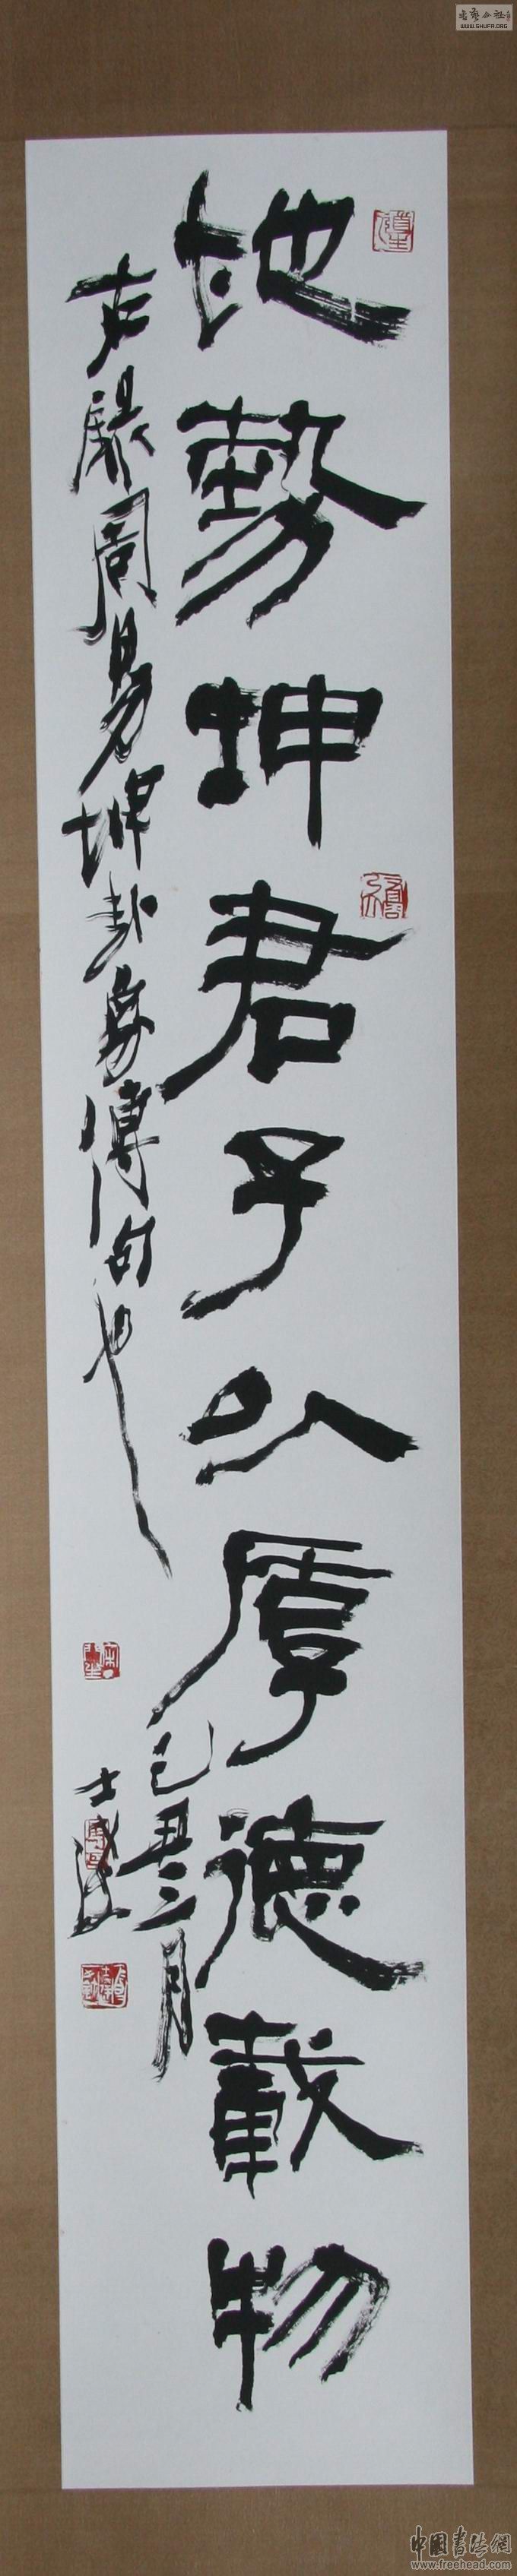 地勢坤君子以厚德載物
右录周易坤卦象傳句也
己丑三月
士
WWW.SHUFA.ORG
中国书法網
www.freehead.com